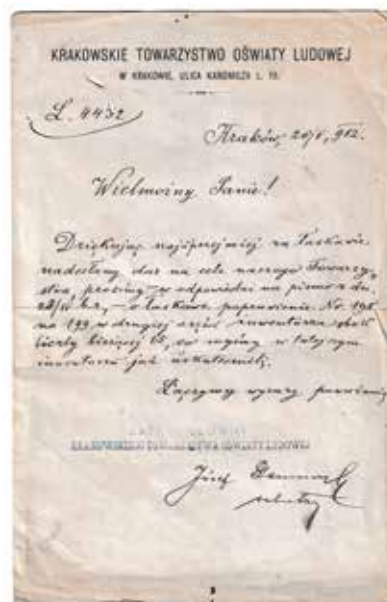 KRAKOWSKIE TOWARZYSTWO OŚWIATY LUDOWEJ
W KRAKOWIE, ULICA KANONICZA L. 19.
L. 4432
Kraków, 20/V, 912.
Wielmożny Panie!
Dziękując najuprzejmiej za łaskawie
nadesłany dar na cele naszego Towarzy-
stwa, prosimy – w odpowiedzi na pismo z dn.
28/IV b.r., – o łaskawe poprawienie Nr. 198
na 199 w drugiej części inwentarza obok
liczby bieżącej co myśmy w tutejszym
inwentarzu już uskutecznili.
Łączymy wyrazy poważania
KRAKOWSKIEGO TOWARZYSTWA OŚWIATY LUDOWEJ
Józef